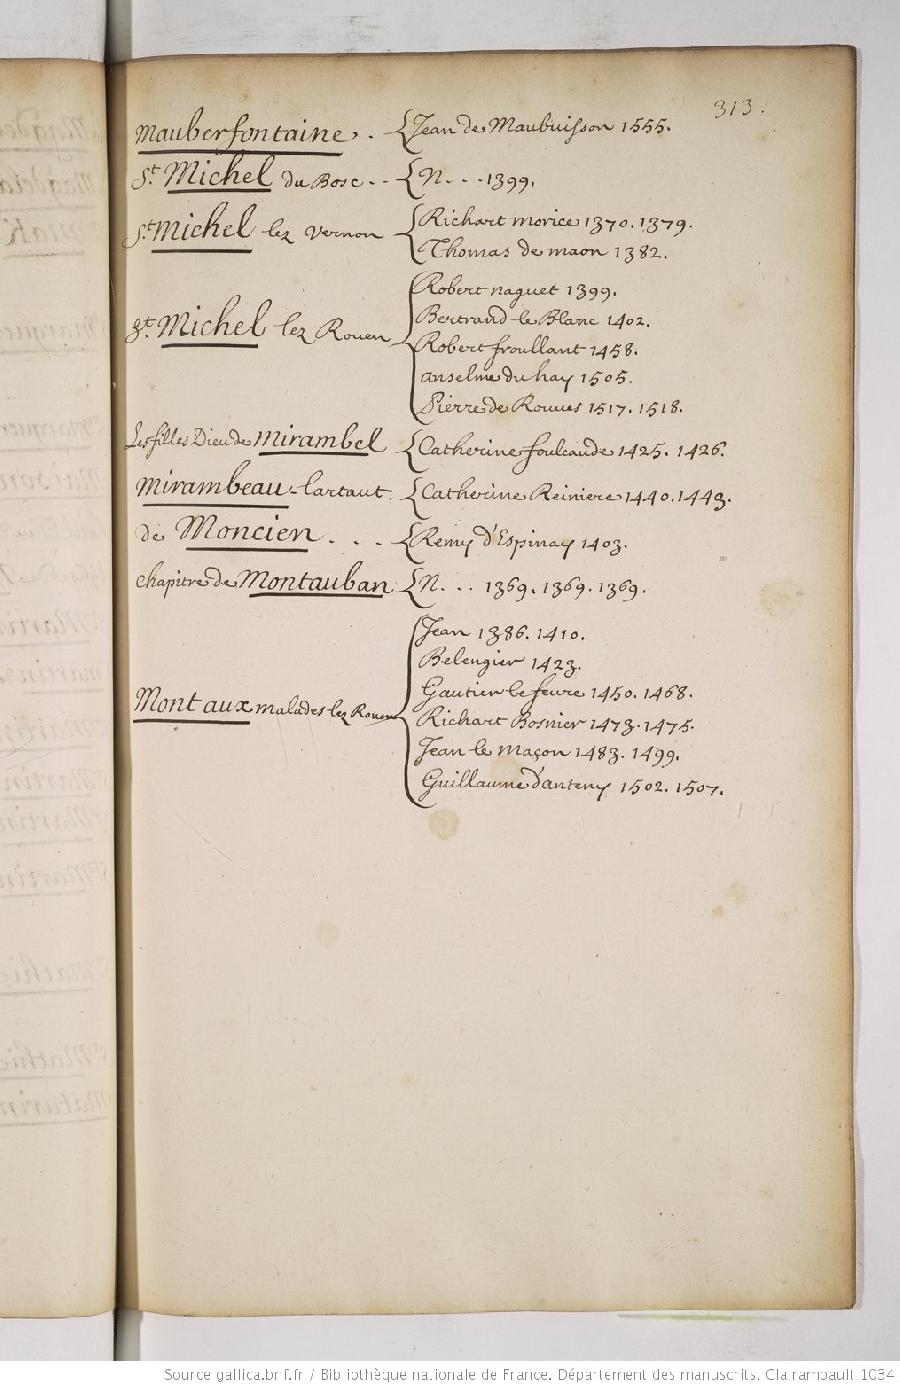 313.
Mauberfontaine . Jean de Maubuisson 1555.
St. Michel du Bosc .. N. .. 1399.
St. Michel lez Vernon
Richart morice 1370. 1379.
Thomas de maon 1382.
St. Michel lez Rouen
Robert naguet 1399.
Bertrand le Blanc 1402.
Robert froullant 1458.
anselme du hay 1505.
Pierre de Rouves 1517. 1518.
Les filles Dieu de Mirambel Catherine foulcaude 1425. 1426.
Mirambeau-lartaut. Catherine Reiniere 1440. 1443.
de Moncien . . . Remy d'Espinay 1403.
chapitre de Montauban N. .. 1369. 1369. 1369.
Montaux malades lez Rouen
Jean 1386. 1410.
Belengier 1423.
Gautier le feure 1450. 1468.
Richart Bosnier 1473. 1475.
Jean le maçon 1483. 1499.
Guillaume d'anteny 1502. 1507.
Source gallica.bnf.fr / Bibliothèque nationale de France. Département des manuscrits. Clairambault 1034